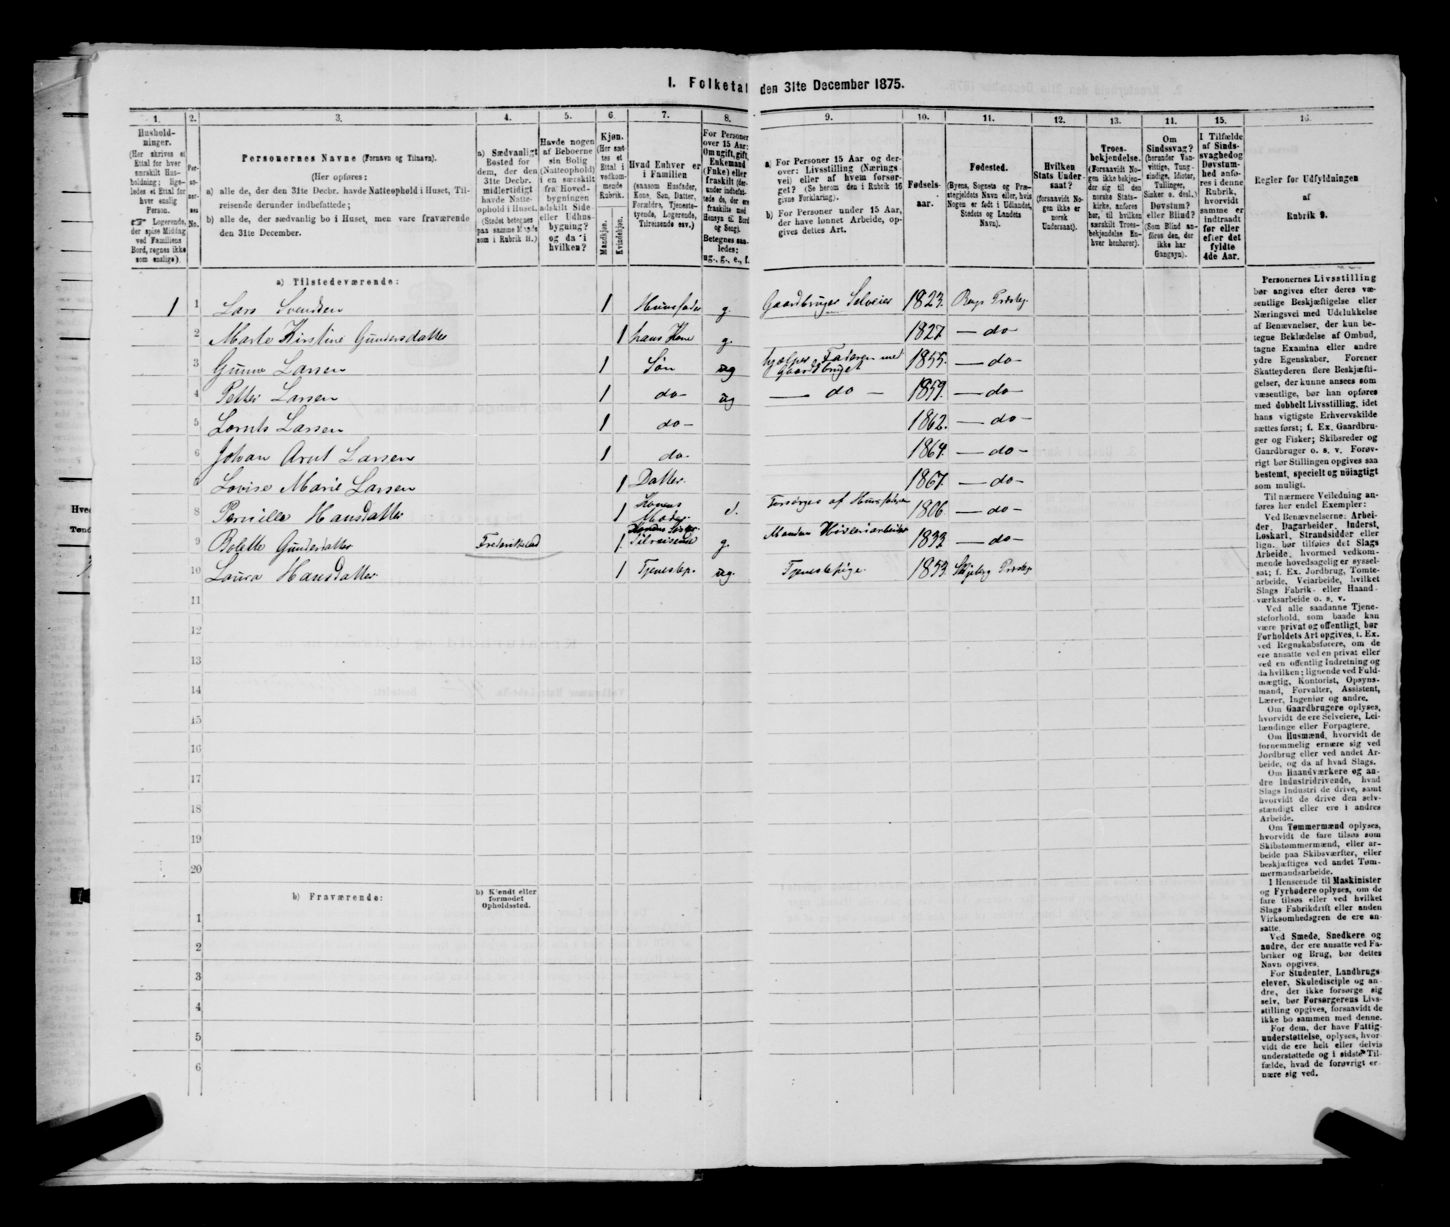 I. Folketal den 31te December 1875.
1. 2. 3. 4. 5. 6. 7. 8. 9. 10. 11. 12. 13. 11. 15. 16.
Hushold-
ninger.
(Her skrives et
Ettal for hver
særskilt Hus-
holdning; lige-
ledes et Ettal for
hver enslig
Person.
Logerende,
der spise Middag
ved Familiens
Bord, regnes ikke
som enslige).
Per-
so-
ner-
nes
No.
Personernes Navne (Fornavn og Tilnavn).
(Her opføres:
a) alle de, der den 31te Decbr. havde Natteophold i Huset, Til-
reisende derunder indbefattede;
b) alle de, der sædvanlig bo i Huset, men vare fraværende
den 31te December.
a) Sædvanligt
Bosted for
dem, der den
31te Decbr.
midlertidigt
havde Natte-
ophold i Huset.
(Stedet betegnes
paa samme Maade
som i Rubrik 11.)
Havde nogen
af Beboerne
sin Bolig
(Natteophold)
i en særskilt
fra Hoved-
bygningen
adskilt Side-
eller Udhus-
bygning?
og da i
hvilken?
Kjøn.
(Her sæt-
tes et
Ettal i
vedkom-
mende
Rubrik.
Mandkjøn.
Kvindekjøn.
Hvad Enhver er
i Familien
(saasom Husfader,
Kone, Søn, Datter,
Forældre, Tjeneste-
tyende, Logerende,
Tilreisende osv.)
For Personer
over 15 Aar:
Om ugift, gift,
Enkemand
(Enke) eller
fraskilt (der-
under indbefat-
tede de, der ere
fraskilte med
Hensyn til Bord
og Seng).
Betegnes saa-
ledes:
ug., g., e., f.
a) For Personer 15 Aar og der-
over: Livsstilling (Nærings-
vei) eller af hvem forsør-
get? (Se herom den i Rubrik 16
givne Forklaring).
b) For Personer under 15 Aar,
der have lønnet Arbeide, op-
gives dettes Art.
Fødsels-
aar.
Fødested.
(Byens, Sognets og Præ-
stegjeldets Navn eller, hvis
Nogen er født i Udlandet,
Stedets og Landets
Navn).
Hvilken
Stats Under-
saat?
(foraavidt No-
gen ikke er
norsk
Undersaat).
Troes-
bekjendelse.
(Forsaavidt No-
gen ikke bekjen-
der sig til den
norske Stats-
kirke, anføres
her, til hvilken
særskilt Troes-
bekjendelse En-
hver henhører).
Om
Sindssvag?
(herunder Van-
vittige, Tung-
sindige, Idioter,
Tullinger,
Sinker o. desl.)
Døvstum?
eller Blind?
(Som Blind an-
føres den, der
ikke har
Gangsyn).
I Tilfælde
af Sinds-
svaghed og
Døvstum-
hed anfø-
res i denne
Rubrik,
hvorvidt
samme er
indtraadt
før eller
efter det
fyldte
4de Aar.
Regler for Udfyldningen
af
Rubrik 9.
a) Tilstedeværende:
1 1 Lars Svendsen 1 Huusfader g. Gaardbruger Selveier 1823. Præsteg.
2 Marte Kirstine Gundersdatter 1 hans Kone g. 1827. — do —
3 Gunne Larsen 1 Søn ug hjælper Faderen med Gaardsbruget 1855. — do —
4 Petter Larsen 1 do — ug — do — 1859. — do —
5 Lornts Larsen 1 do — 1862. — do —
6 Johan Arnt Larsen 1 do. 1864. — do —
Lovise Marie Larsen 1 Datter. 1867. — do —
8 Pernille Hansdatter 1 Konens Moder e. Forsørges af Huusfaderen 1806 — do —
9 Bolette Gundersdatter Frederikstad 1 Konens Søster Tilreisende g. Manden 1833. — do —
10 Laura Hansdatter 1 Tjenestep. ug. Tjenestepige. 1853. Skjeberg Præsteg.
11
12
13
14
15
16
17
18
19
20
b) Fraværende:
b) Kjendt eller
formodet
Opholdssted.
1
2
3
4
5
6
Personernes Livsstilling
bør angives efter deres væ-
sentlige Beskjæftigelse eller
Næringsvei med Udelukkelse
af Benævnelser, der kun be-
tegne Beklædelse af Ombud,
tagne Examina eller andre
ydre Egenskaber. Forener
Skatteyderen flere Beskjæfti-
gelser, der kunne ansees som
væsentlige, bør han opføres
med dobbelt Livsstilling, idet
hans vigtigste Erhvervskilde
sættes først; f. Ex. Gaardbru-
ger og Fisker; Skibsreder og
Gaardbruger o. s. v. Forøv-
rigt bør Stillingen opgives saa
bestemt, specielt og nøiagtigt
som muligt.
Til nærmere Veiledning an-
føres her endel Exempler:
Ved Benævnelserne: Arbei-
der, Dagarbeider, Inderst,
Løskarl, Strandsidder eller
lign. bør tilføies det Slags
Arbeide, hvormed vedkom-
mende hovedsagelig er syssel-
sat; f. Ex. Jordbrug, Tomte-
arbeide, Veiarbeide, hvilket
Slags Fabrik- eller Haand-
værksarbeide o. s. v.
Ved alle saadanne Tjene-
steforhold, som baade kan
være privat og offentligt, bør
Forholdets Art opgives, f. Ex.
ved Regnskabsførere, om de
ere ansatte ved en privat eller
ved en offentlig Indretning og
da hvilken; lignende ved Fuld-
mægtig, Kontorist, Opsyns-
mand, Forvalter, Assistent,
Lærer, Ingeniør og andre.
Om Gaardbrugere oplyses,
hvorvidt de ere Selveiere, Lei-
lændinge eller Forpagtere.
Om Husmænd, hvorvidt de
fornemmelig ernære sig ved
Jordbrug eller ved andet Ar-
beide, og da af hvad Slags.
Om Haandværkere og an-
dre Industridrivende, hvad
Slags Industri de drive, samt
hvorvidt de drive den selv-
stændigt eller ere i andres
Arbeide.
Om Tømmermænd oplyses,
hvorvidt de fare tilsøs som
Skibstømmermænd, eller ar-
beide paa Skibsværfter, eller
beskjæftiges ved andet Tøm-
mermandsarbeide.
I Henseende til Maskinister
og Fyrbødere oplyses, om de
fare tilsøs eller ved hvilket
Slags Fabrikdrift eller anden
Virksomhedsgren de ere an-
satte.
Ved Smede, Snedkere og
andre, der ere ansatte ved Fa-
briker og Brug, bør dettes
Navn opgives.
For Studenter, Landbrugs-
elever, Skoledisciple og an-
dre, der ikke forsørge sig
selv, bør Forsørgerens Livs-
stilling opgives, forsaavidt de
ikke bo sammen med denne.
For dem, der have Fattig-
understøttelse, oplyses, hvor-
vidt de ere helt eller delvis
understøttede og i sidste Til-
fælde, hvad de forøvrigt er-
nære sig ved.